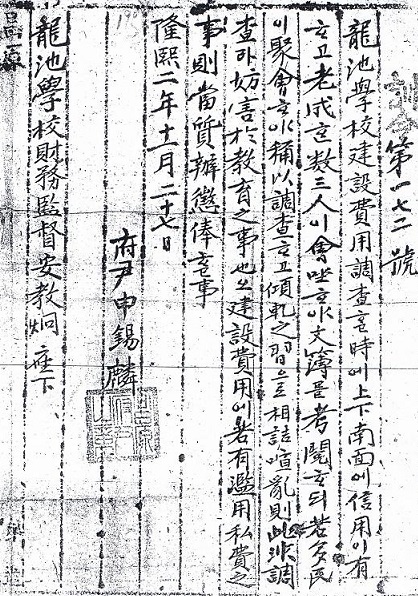 訓令第一七二號
龍池學校建設費用調查ᄒᆞᆯ時에上下南面에信用이有
ᄒᆞ고老成ᄒᆞᆫ数三人이會坐ᄒᆞ야文簿를考閱ᄒᆞ되若多民
이聚會ᄒᆞ야稱以調查ᄒᆞ고傾軋之習으로相詰喧亂則此非調
查라妨害於教育之事也오建設費用에若有濫用私費之
事則當質辦懲俸ᄒᆞᆯ事
隆熙二年十一月二十七日
府尹申錫麟
龍池學校財務監督安教炯座下
昌原